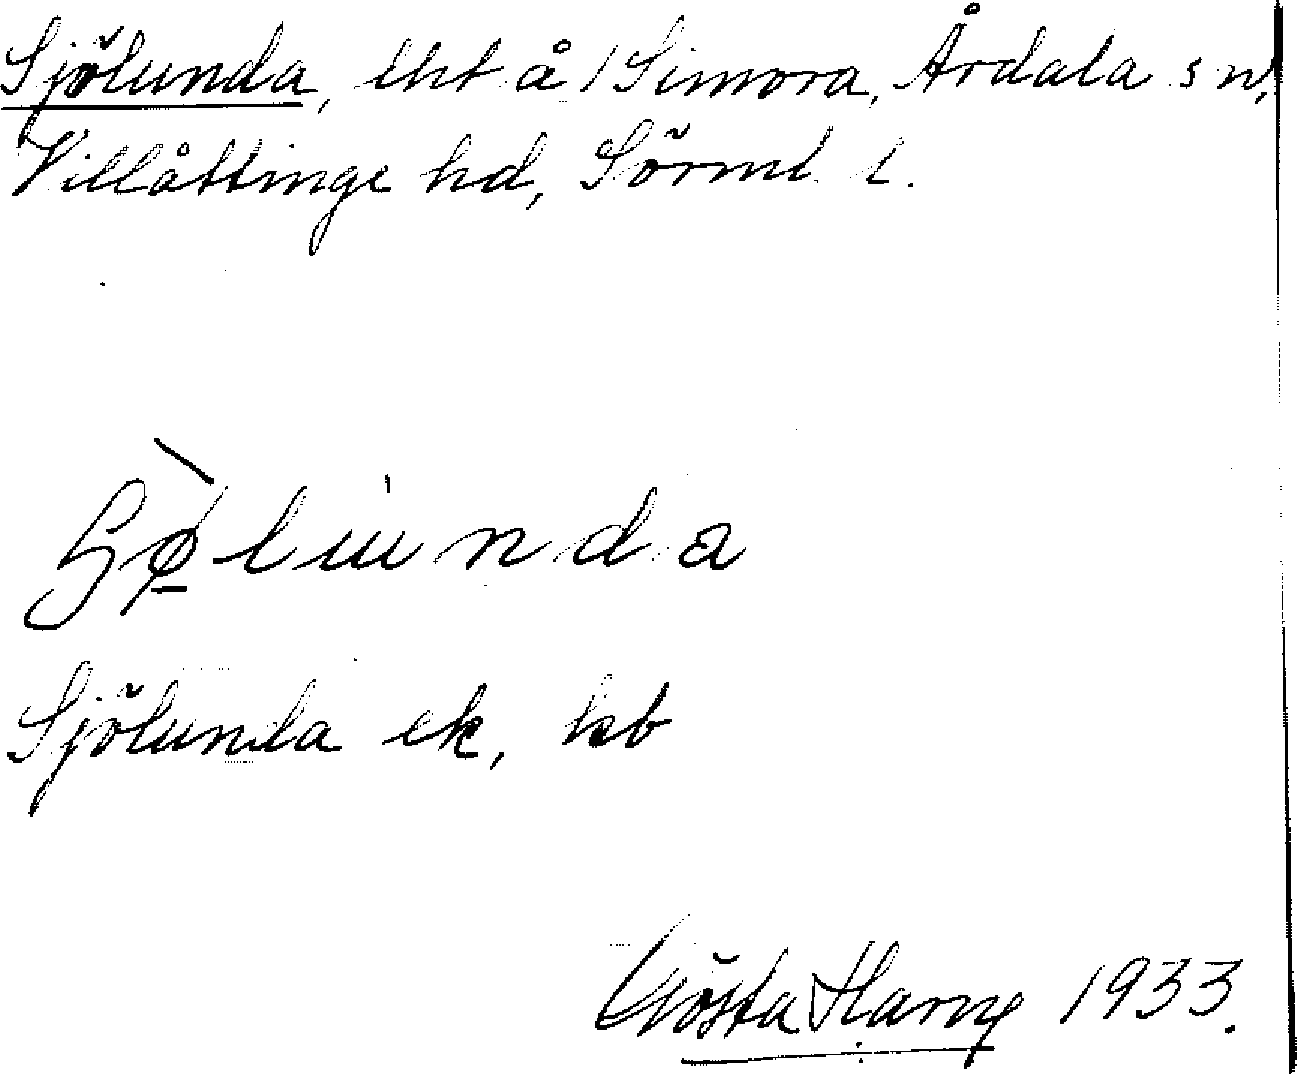 Sjölunda, lht å /Simora, Årdala sn,
Villåttinge hd, Sörml. l.
Sø̀lunda
Sjölunda ek, kb
Gösta Harng 1933.